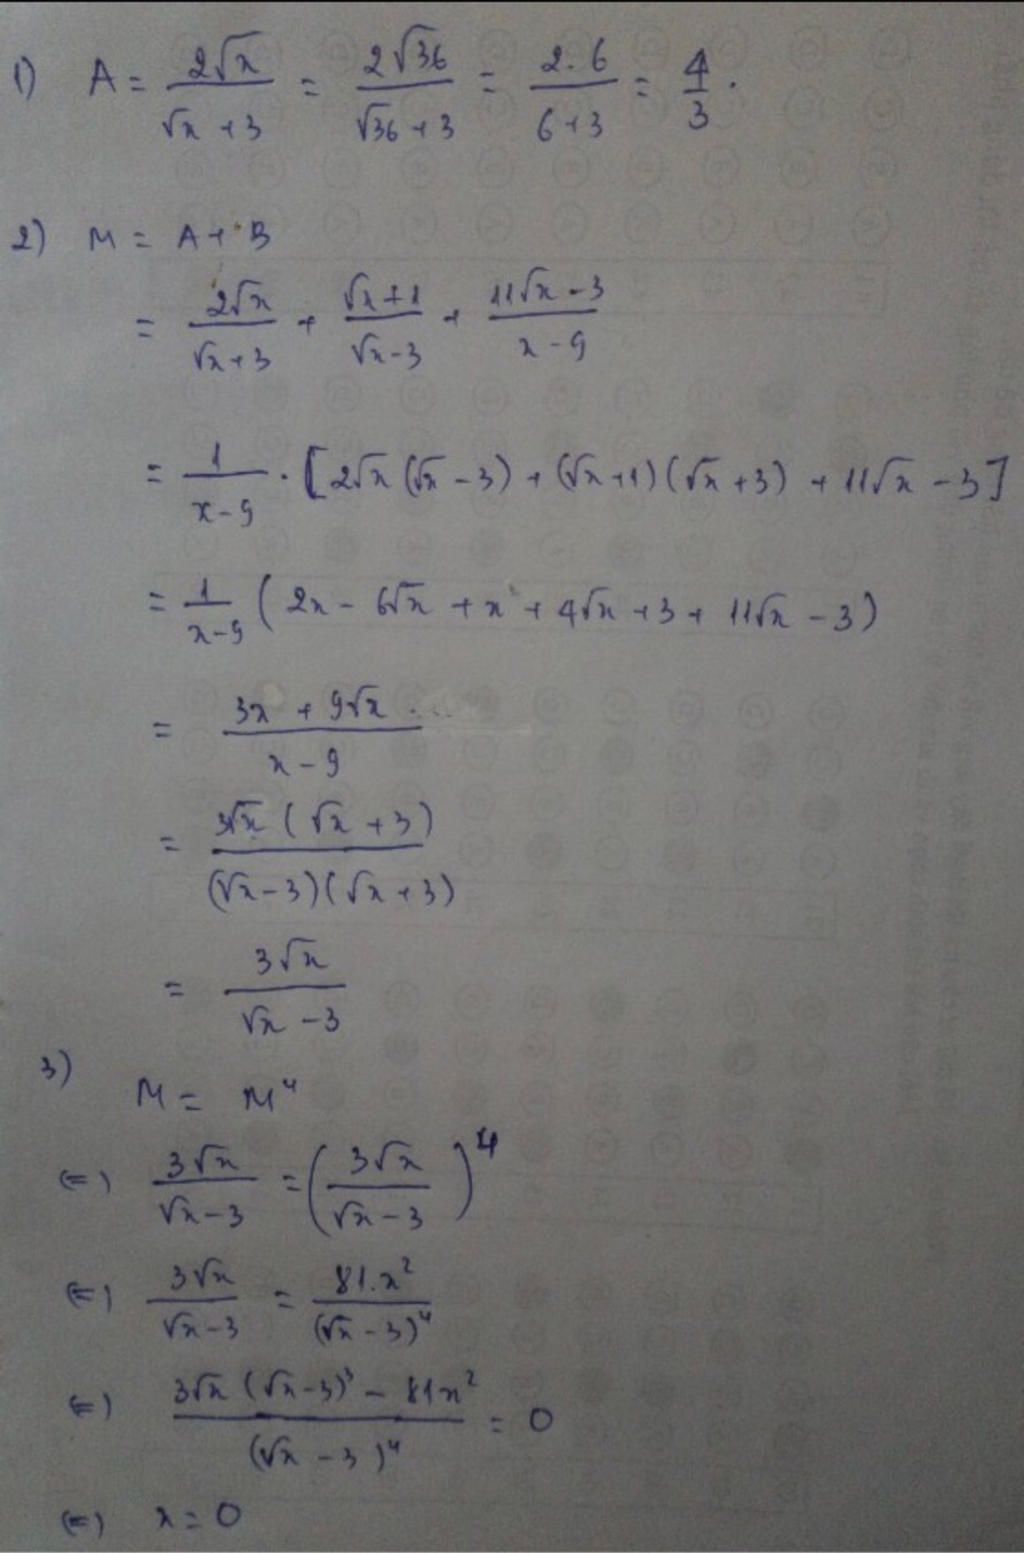 1) A = 2√x / (√x + 3) = 2√36 / (√36 + 3) = 2.6 / (6 + 3) = 4/3 .
2) M = A + B
= 2√x / (√x + 3) + (√x + 1) / (√x - 3) + (11√x - 3) / (x - 9)
= 1 / (x - 9) . [2√x (√x - 3) + (√x + 1) (√x + 3) + 11√x - 3]
= 1 / (x - 9) (2x - 6√x + x + 4√x + 3 + 11√x - 3)
= (3x + 9√x) / (x - 9)
= 3√x (√x + 3) / (√x - 3)(√x + 3)
= 3√x / (√x - 3)
3) M = M⁴
(=) 3√x / (√x - 3) = (3√x / (√x - 3))⁴
(=) 3√x / (√x - 3) = 81.x² / (√x - 3)⁴
(=) (3√x (√x - 3)³ - 81x²) / (√x - 3)⁴ = 0
(=) x = 0